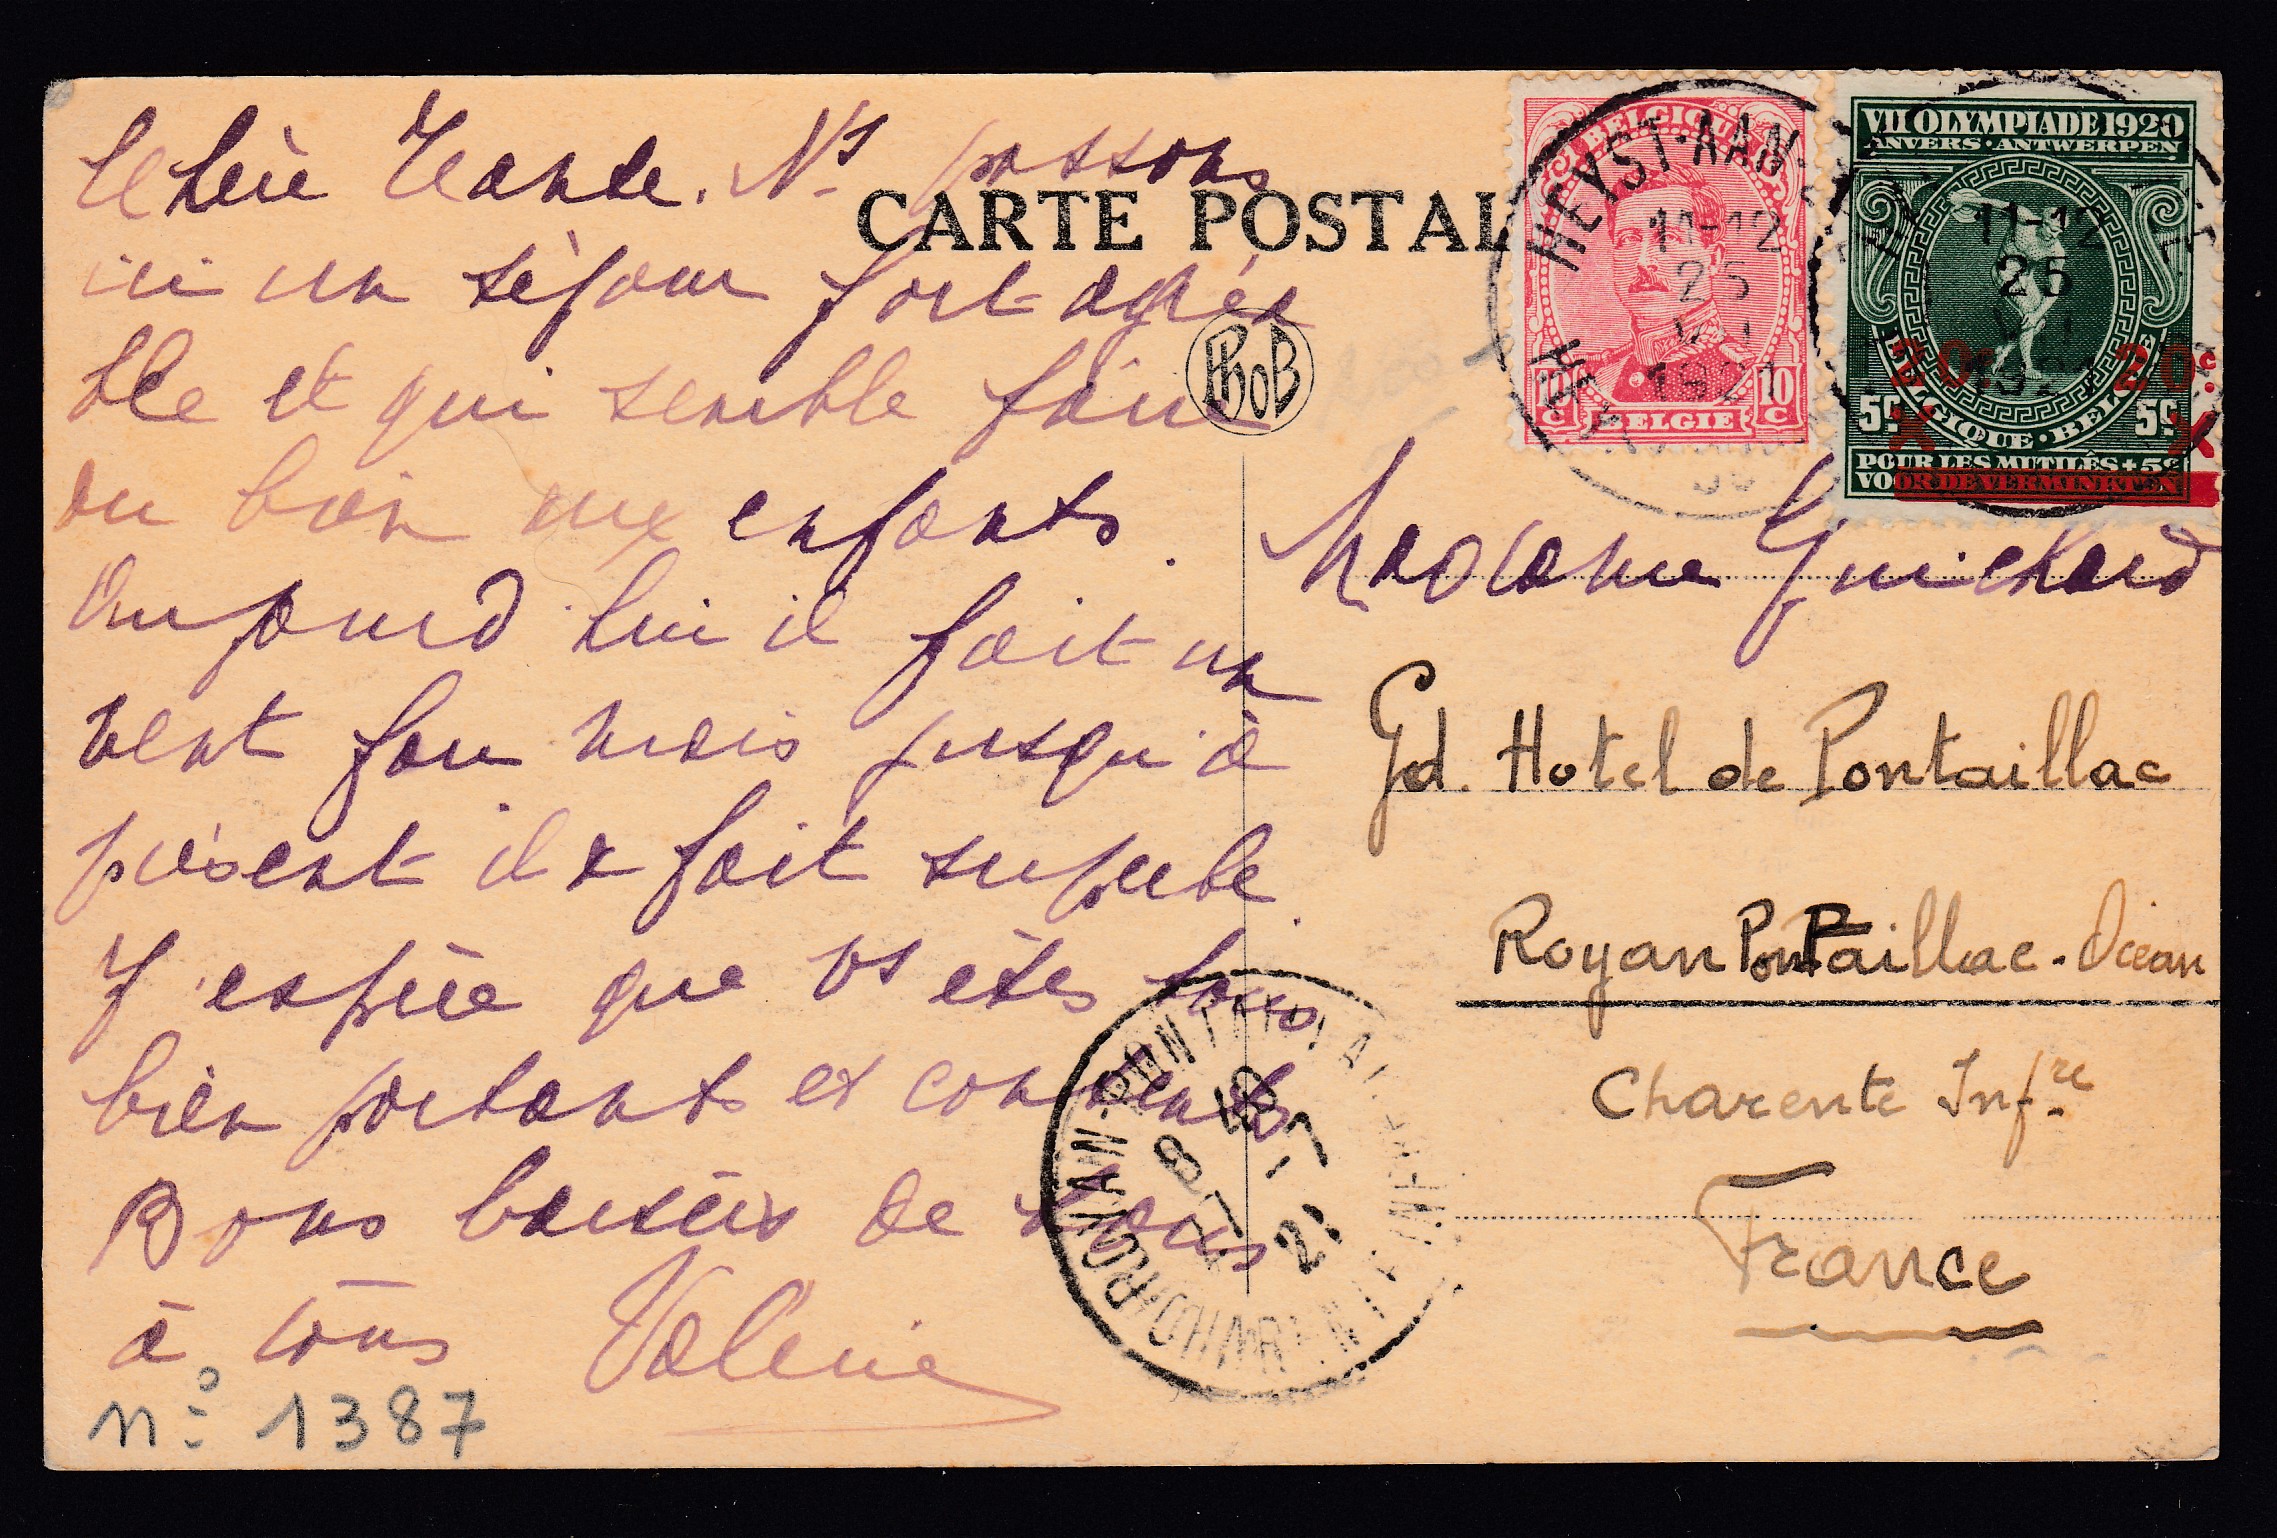 CARTE POSTALE
Chère Tante. Ns passons
ici un séjour fort agréa
ble et qui semble faire
du bien aux enfants.
Aujourd'hui il fait un
vent fou mais jusqu'à
présent il a fait superbe.
J'espère que vs êtes tous
bien portants et contents
Bons baisers de nous
à tous Valérie
n° 1387
PhoB
BELGIQUE
10 c 10 c
BELGIE
HEYST-AAN-
11-12
25
1921
VII OLYMPIADE 1920
ANVERS · ANTWERPEN
20c. 20c.
5c 5c
BELGIQUE · BELGIË
POUR LES MUTILÉS + 5c
VOOR DE VERMINKTEN
11-12
25
Madame Guichard
Gd. Hotel de Pontaillac
Royan Pontaillac-Océan
Charente Infre
France
ROYAN-PONTAILLAC
21